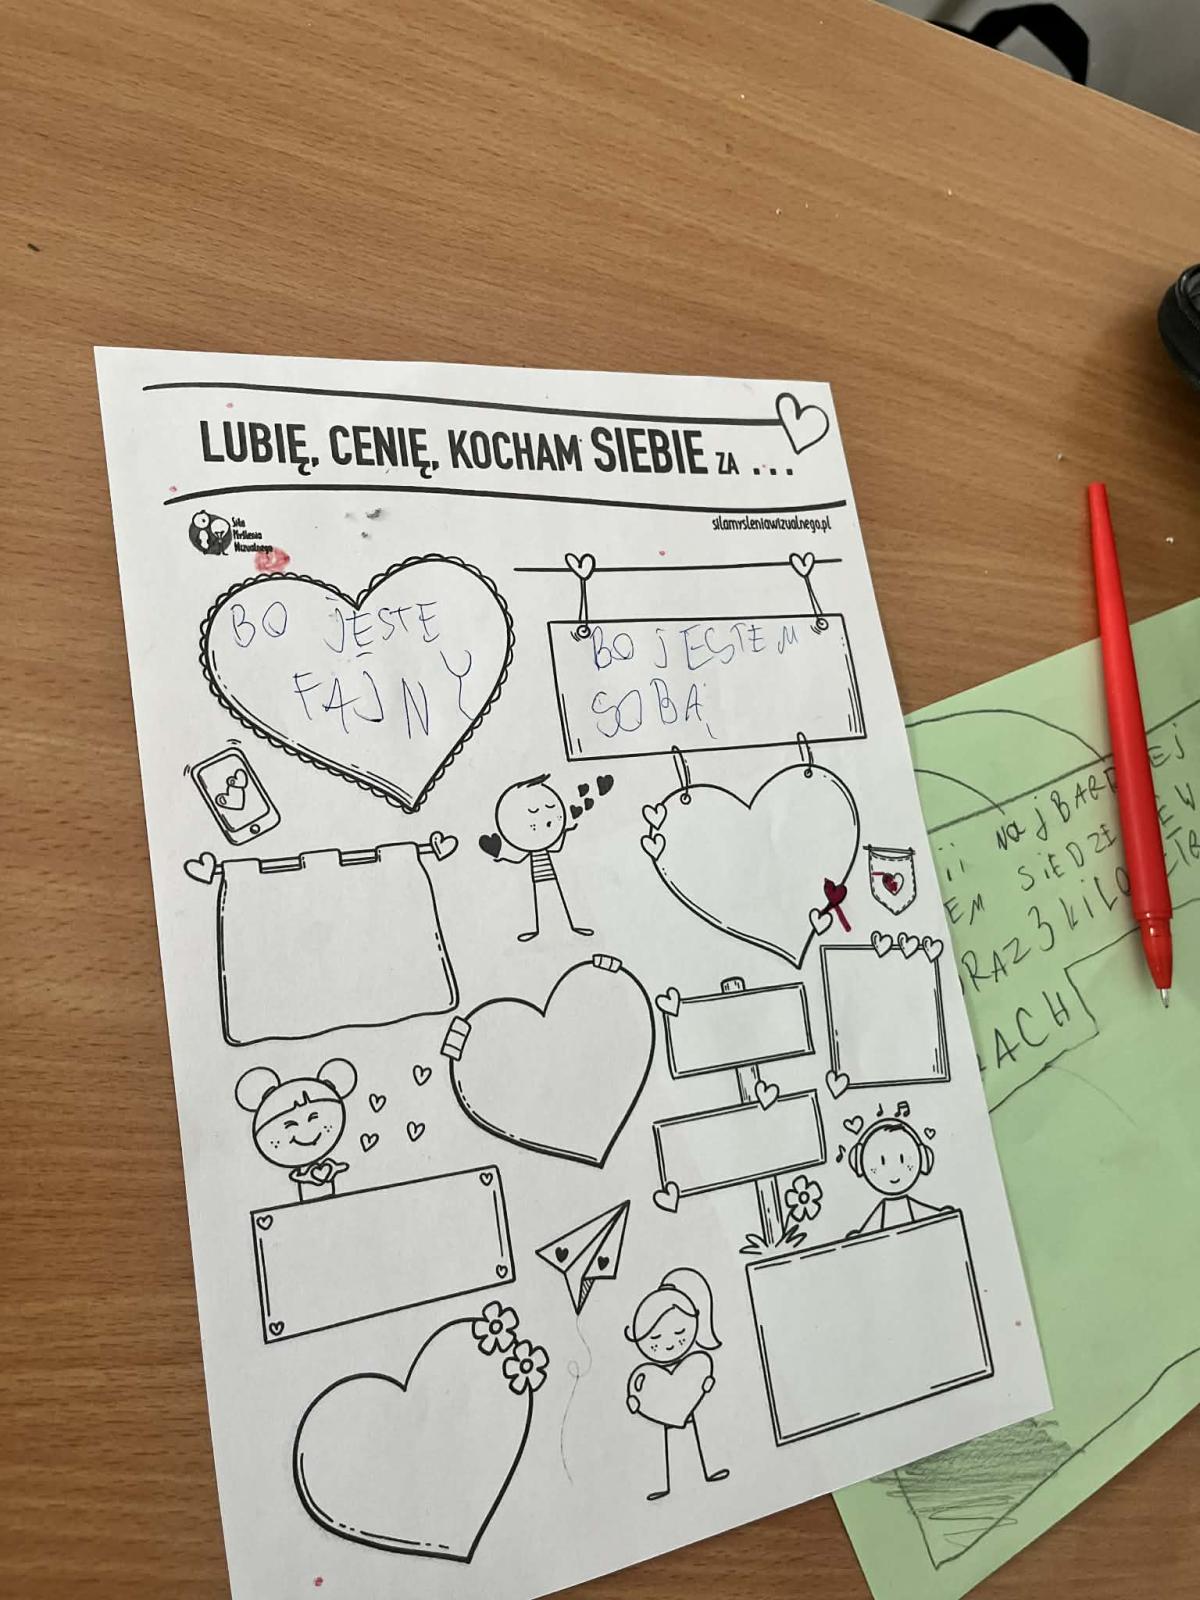 LUBIĘ, CENIĘ, KOCHAM SIEBIE ZA ...
Siła
Myślenia
Wizualnego
silamysleniawizualnego.pl
BO JESTĘ
FAJNY
BO JESTEM
SOBĄ
NajBARDZIEJ
SiEDZE
3 KiLO